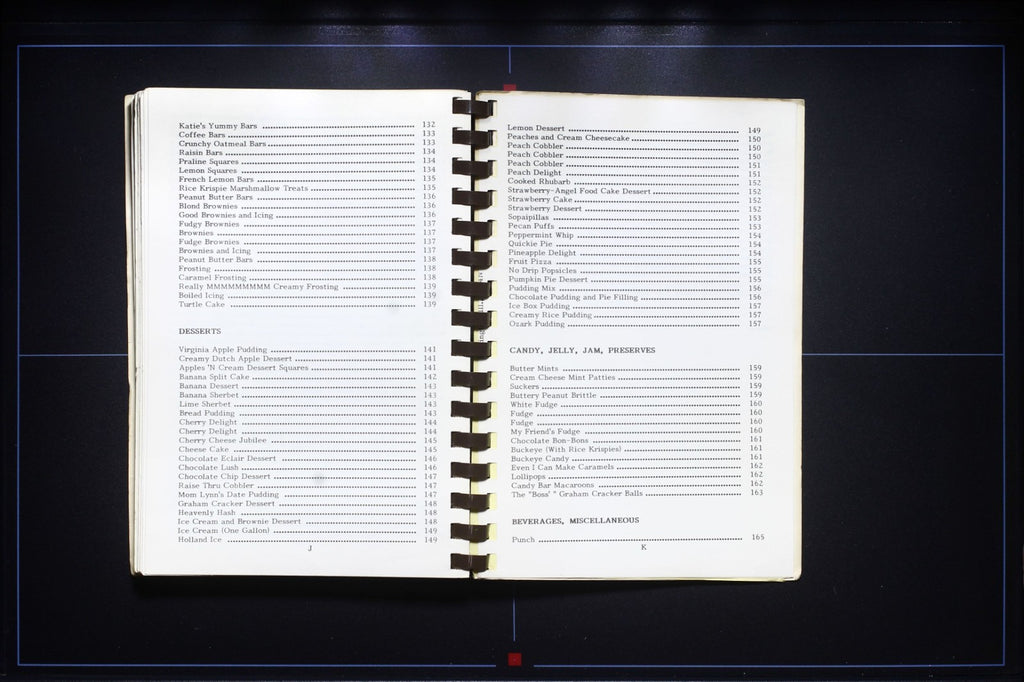 Katie's Yummy Bars 132
Coffee Bars 133
Crunchy Oatmeal Bars 133
Raisin Bars 134
Praline Squares 134
Lemon Squares 134
French Lemon Bars 135
Rice Krispie Marshmallow Treats 135
Peanut Butter Bars 136
Blond Brownies 136
Good Brownies and Icing 136
Fudgy Brownies 137
Brownies 137
Fudge Brownies 137
Brownies and Icing 137
Peanut Butter Bars 138
Frosting 138
Caramel Frosting 138
Really MMMMMMMMMM Creamy Frosting 139
Boiled Icing 139
Turtle Cake 139
DESSERTS
Virginia Apple Pudding 141
Creamy Dutch Apple Dessert 141
Apples 'N Cream Dessert Squares 141
Banana Split Cake 142
Banana Dessert 143
Banana Sherbet 143
Lime Sherbet 143
Bread Pudding 143
Cherry Delight 144
Cherry Delight 144
Cherry Cheese Jubilee 145
Cheese Cake 145
Chocolate Eclair Dessert 146
Chocolate Lush 146
Chocolate Chip Dessert 147
Raise Thru Cobbler 147
Mom Lynn's Date Pudding 147
Graham Cracker Dessert 148
Heavenly Hash 148
Ice Cream and Brownie Dessert 148
Ice Cream (One Gallon) 149
Holland Ice 149
J
Lemon Dessert 149
Peaches and Cream Cheesecake 150
Peach Cobbler 150
Peach Cobbler 150
Peach Cobbler 151
Peach Delight 151
Cooked Rhubarb 152
Strawberry-Angel Food Cake Dessert 152
Strawberry Cake 152
Strawberry Dessert 152
Sopaipillas 153
Pecan Puffs 153
Peppermint Whip 154
Quickie Pie 154
Pineapple Delight 154
Fruit Pizza 155
No Drip Popsicles 155
Pumpkin Pie Dessert 155
Pudding Mix 156
Chocolate Pudding and Pie Filling 156
Ice Box Pudding 157
Creamy Rice Pudding 157
Ozark Pudding 157
CANDY, JELLY, JAM, PRESERVES
Butter Mints 159
Cream Cheese Mint Patties 159
Suckers 159
Buttery Peanut Brittle 159
White Fudge 160
Fudge 160
Fudge 160
My Friend's Fudge 160
Chocolate Bon-Bons 161
Buckeye (With Rice Krispies) 161
Buckeye Candy 161
Even I Can Make Caramels 162
Lollipops 162
Candy Bar Macaroons 162
The "Boss' " Graham Cracker Balls 163
BEVERAGES, MISCELLANEOUS
Punch 165
K